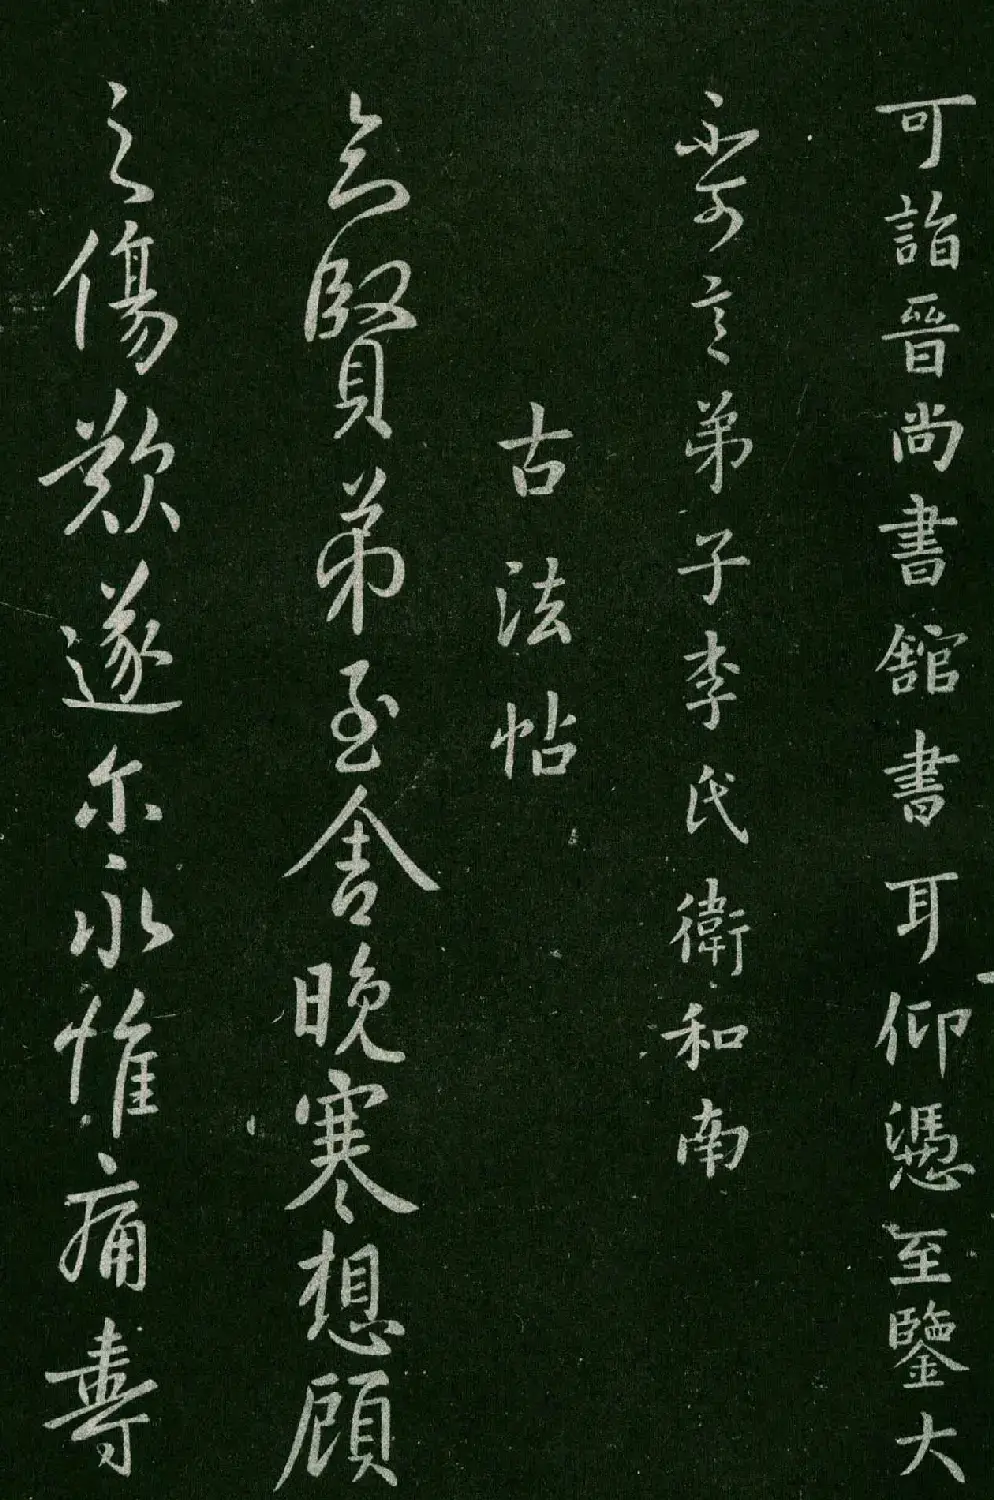 可詣晉尚書舘書耳仰憑至鑒大
不可言弟子李氏衛和南
古法帖
賢弟至舍晚寒想顧
之傷歎遂尔永惟痛壽